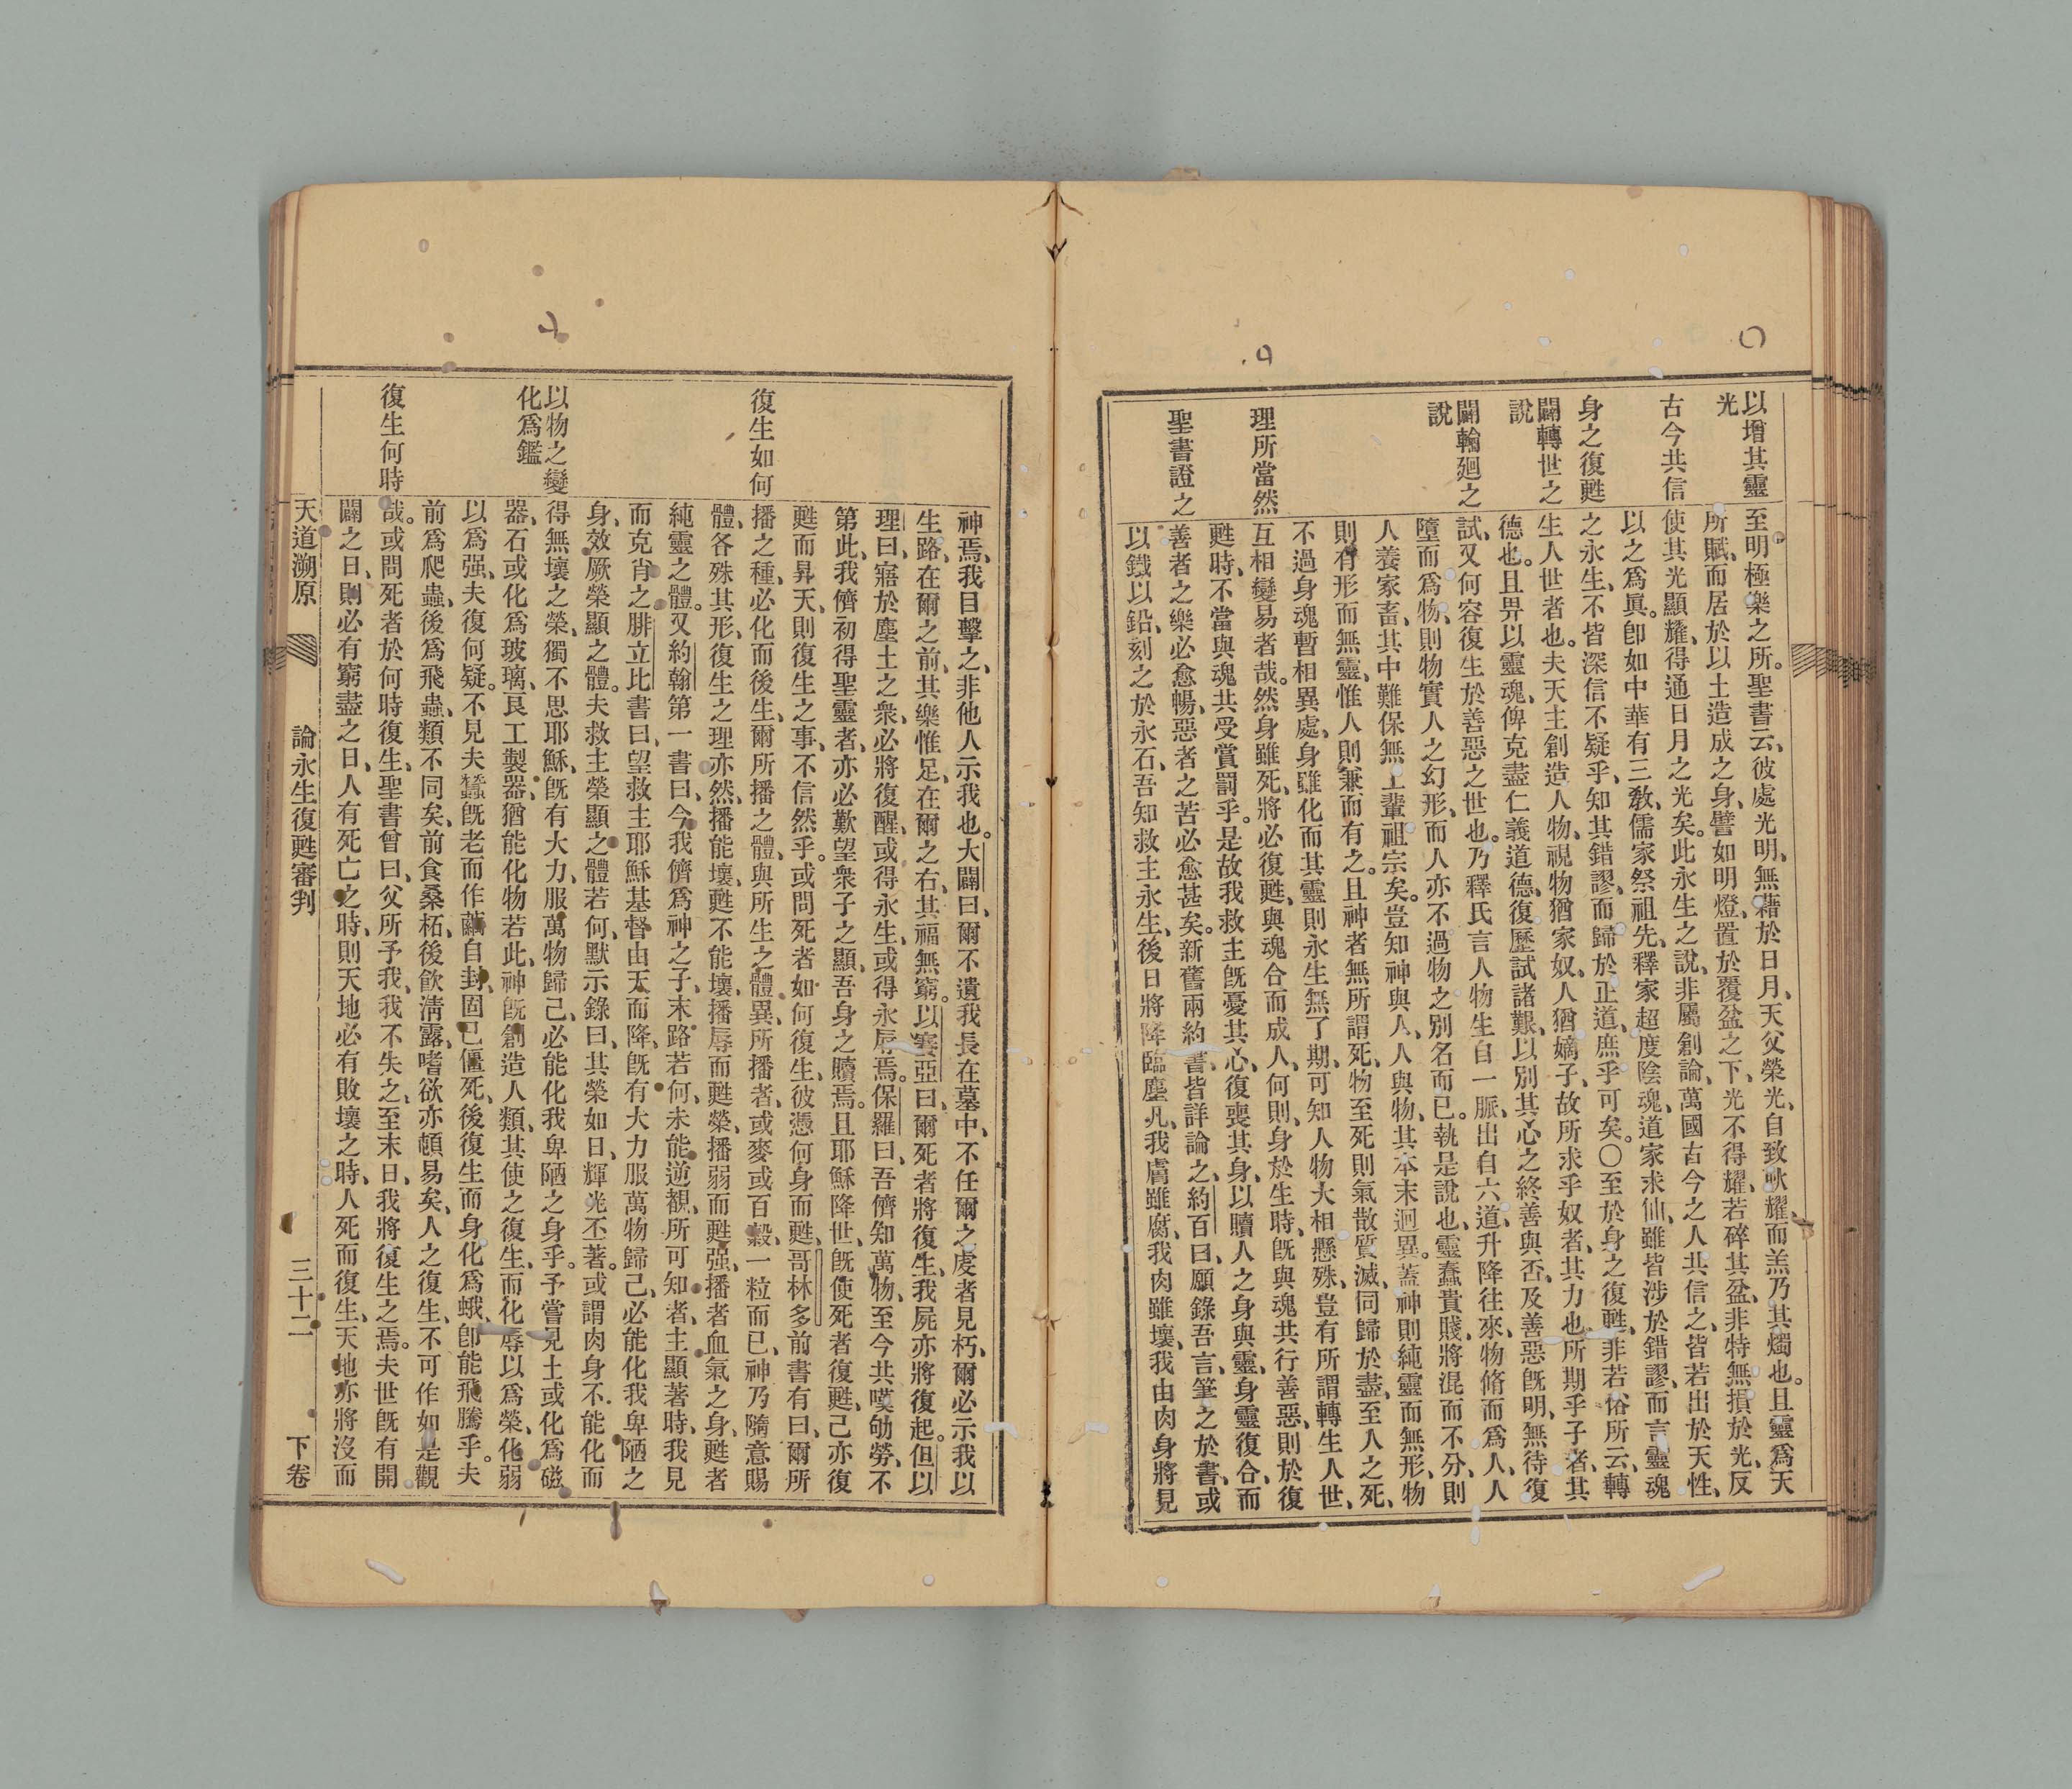 以增其靈
光
古今共信
身之復甦
闢轉世之
說
闢輪廻之
說
理所當然
聖書證之
至明極樂之所。聖書云、彼處光明、無藉於日月、天父榮光、自致欥耀、而羔乃其燭也。且靈爲天
所賦、而居於以土造成之身、譬如明燈、置於覆盆之下、光不得耀、若碎其盆、非特無損於光、反
使其光顯耀、得通日月之光矣。此永生之說、非屬創論、萬國古今之人共信之、皆若出於天性、
以之爲眞。卽如中華有三敎、儒家祭祖先、釋家超度陰魂、道家求仙、雖皆涉於錯謬、而言靈魂
之永生、不皆深信不疑乎、知其錯謬、而歸於正道、庶乎可矣。〇至於身之復甦、非若俗所云、轉
生人世者也。夫天主創造人物、視物猶家奴、人猶嫡子、故所求乎奴者、其力也、所期乎子者、其
德也。且畀以靈魂、俾克盡仁義道德、復歷試諸艱、以別其心之終善與否、及善惡旣明、無待復
試、又何容復生於善惡之世也。乃釋氏言人物生自一脈、出自六道、升降往來、物脩而爲人、人
墮而爲物、則物實人之幻形、而人亦不過物之別名而已。執是說也、靈蠢貴賤、將混而不分、則
人養家畜、其中難保無上輩祖宗矣。豈知神與人、人與物、其本末迥異。蓋神則純靈而無形、物
則有形而無靈、惟人則兼而有之。且神者無所謂死、物至死則氣散質滅、同歸於盡、至人之死、
不過身魂暫相異處、身雖化而其靈則永生無了期、可知人物大相懸殊、豈有所謂轉生人世、
互相變易者哉。然身雖死、將必復甦、與魂合而成人、何則、身於生時、旣與魂共行善惡、則於復
甦時、不當與魂共受賞罰乎。是故我救主旣憂其心、復喪其身、以贖人之身與靈、身靈復合、而
善者之樂必愈暢、惡者之苦必愈甚矣。新舊兩約書、皆詳論之、約百曰、願錄吾言、筆之於書、或
以鐵以鉛、刻之於永石、吾知救主永生、後日將降臨塵凡、我膚雖腐、我肉雖壞、我由肉身將見
復生如何
以物之變
化爲鑑
復生何時
神焉、我目擊之、非他人示我也。大闢曰、爾不遺我長在墓中、不任爾之虔者見朽、爾必示我以
生路、在爾之前、其樂惟足、在爾之右、其福無窮。以賽亞曰、爾死者將復生、我屍亦將復起。但以
理曰、寤於塵土之衆、必將復醒、或得永生、或得永辱焉。保羅曰、吾儕知萬物、至今共嘆劬勞、不
第此、我儕初得聖靈者、亦必歎望衆子之顯、吾身之贖焉。且耶穌降世、旣使死者復甦、己亦復
甦而昇天、則復生之事、不信然乎。或問死者如何復生、彼憑何身而甦、哥林多前書有曰、爾所
播之種、必化而後生、爾所播之體、與所生之體異、所播者、或麥或百穀、一粒而已、神乃隨意賜
體、各殊其形、復生之理亦然、播能壞、甦不能壞、播辱而甦榮、播弱而甦强、播者血氣之身、甦者
純靈之體。又約翰第一書曰、今我儕爲神之子、末路若何、未能逆覩、所可知者、主顯著時、我見
而克肖之。腓立比書曰、望救主耶穌基督由天而降、旣有大力服萬物歸己、必能化我卑陋之
身、效厥榮顯之體。夫救主榮顯之體若何、默示錄曰、其榮如日、輝光丕著。或謂肉身不能化而
得無壞之榮、獨不思耶穌、旣有大力、服萬物歸己、必能化我卑陋之身乎。予嘗見土或化爲磁
器、石或化爲玻璃、良工製器、猶能化物若此、神旣創造人類、其使之復生、而化辱以爲榮、化弱
以爲强、夫復何疑。不見夫蠶旣老而作繭自封、固已僵死、後復生而身化爲蛾、卽能飛騰乎。夫
前爲爬蟲、後爲飛蟲、類不同矣、前食桑柘、後飮淸露、嗜欲亦頓易矣、人之復生、不可作如是觀
哉。或問死者於何時復生、聖書曾曰、父所予我、我不失之、至末日、我將復生之焉。夫世旣有開
闢之日、則必有窮盡之日、人有死亡之時、則天地必有敗壞之時、人死而復生、天地亦將沒而
天道溯原 論永生復甦審判 三十二 下卷